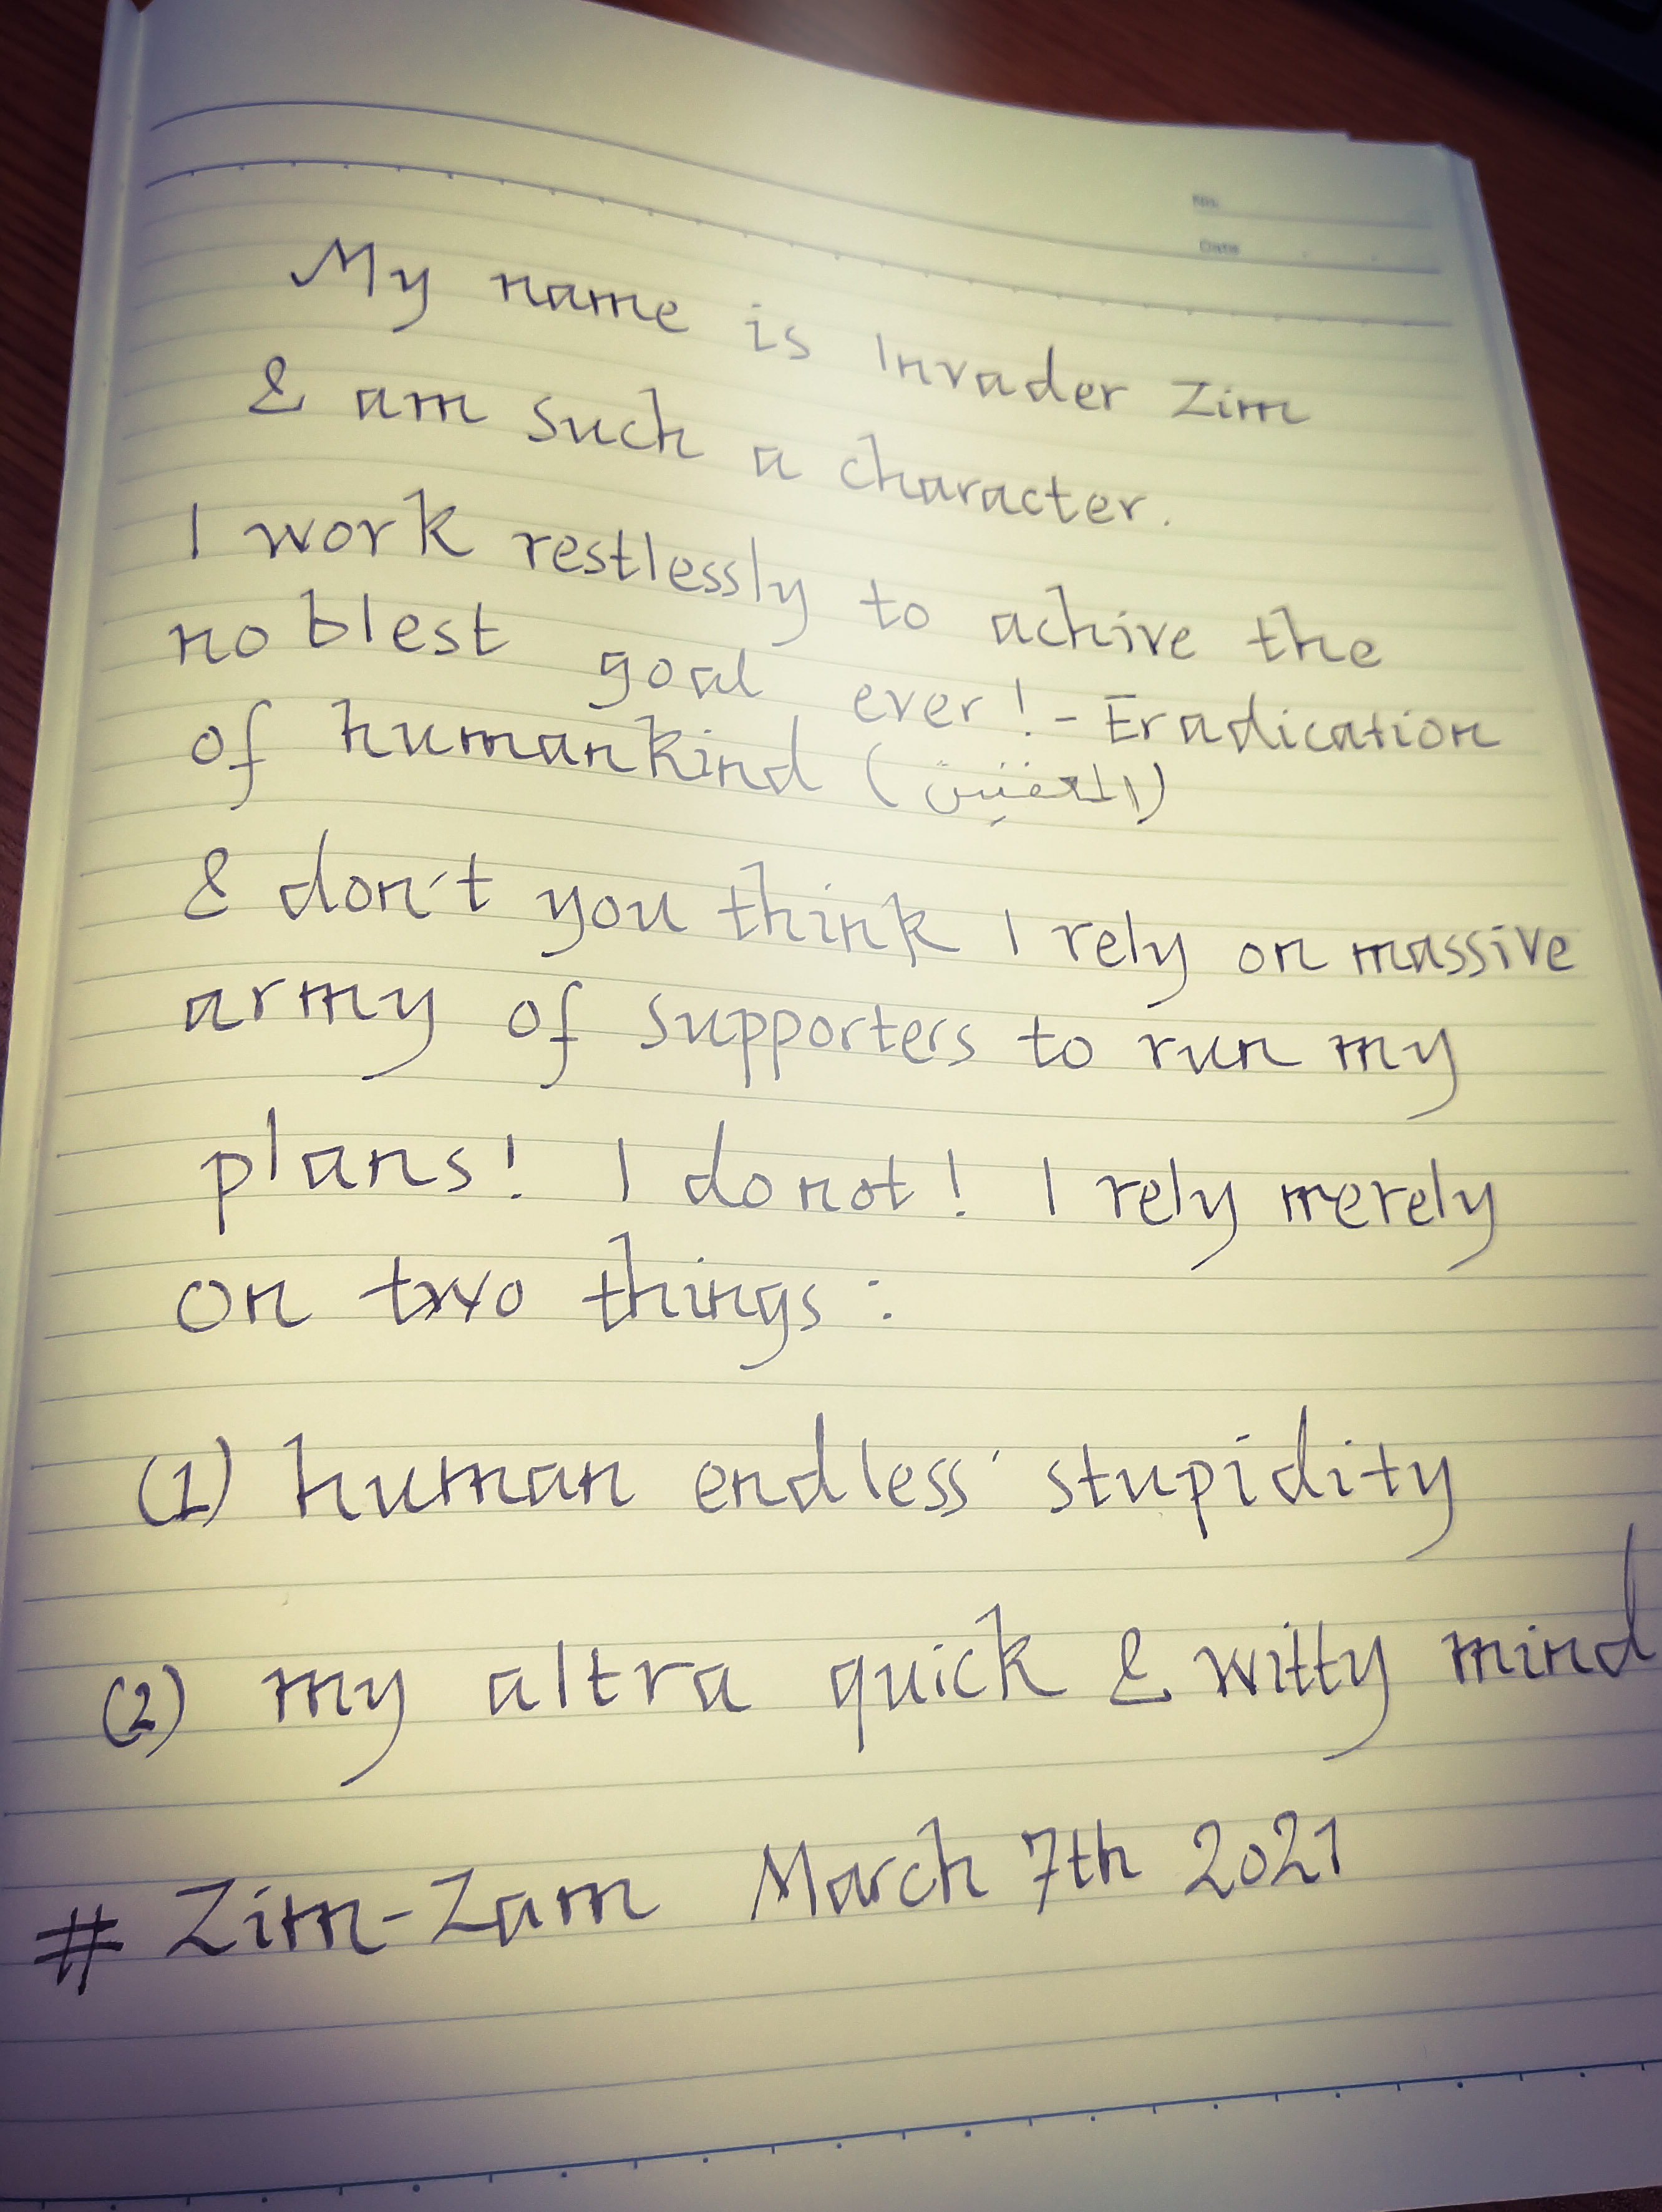 No.
Date
My name is Invader Zim
& am such a character.
I work restlessly to achive the
noblest goal ever! - Eradication
of humankind (
& don't you think I rely on massive
army of supporters to run my
plans! I do not! I rely merely
on two things:
(1) human endless stupidity
(2) my altra quick & witty mind
# Zim-Zam March 7th 2021